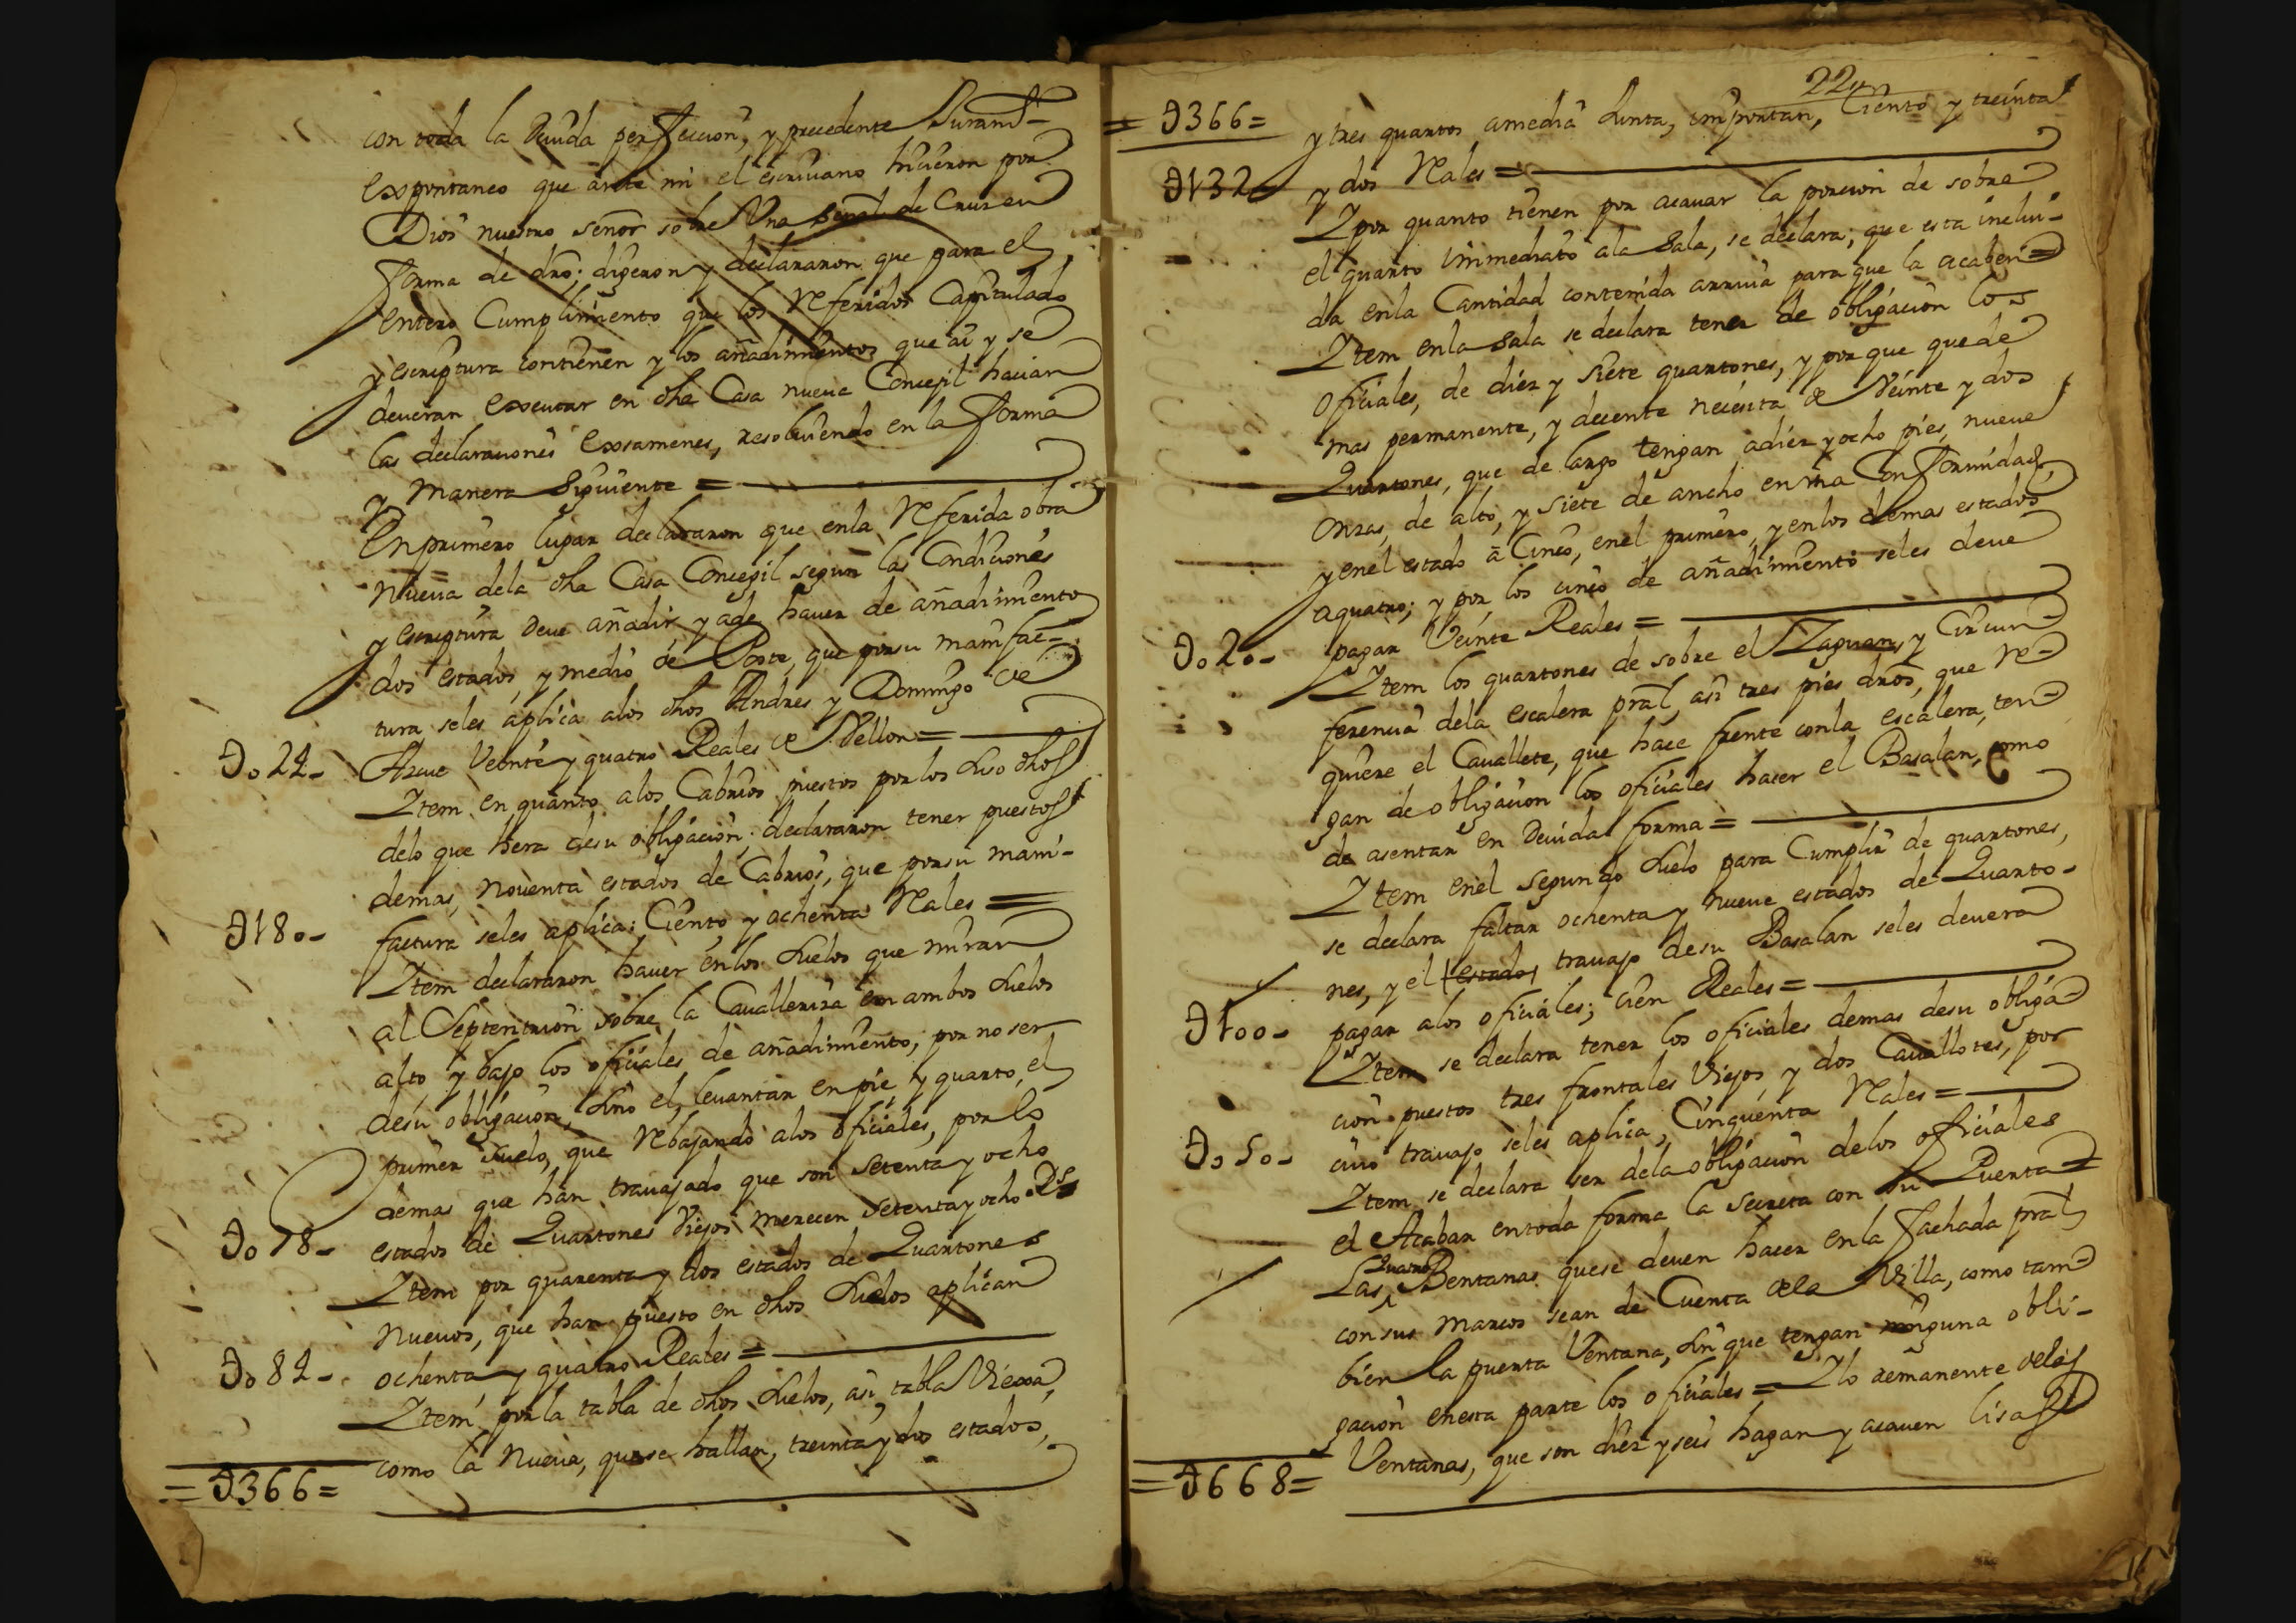 con toda la Deuida perfeccion, y precedente Juram.to
expontaneo que ante mi el escriuano hicieron por
Dios nuestro señor sobre Vna señal de Cruz en
forma de dro; digeron y declararon que para el
entero Cumplimiento que los Referidos Capitulado
y escriptura contienen y los añadimientos que ai y se
deueran executar en dha Casa nueua Concegil hacian
las declaraciones exsamenes, resoluiendo en la forma
y manera Siguiente =
En primero lugar declararon que enla Referida obra
nueua dela dha Casa Concegil segun las Condiciones
y escriptura deue añadir y ade hauer de añadimiento
dos estados, y medio de Poste, que porsu manifac-
tura seles aplica alos dhos Andres y Domingo de
D024- Azcue Veinte y quatro Reales de Vellon =
Ztem en quanto alos Cabrios puestos por los suso dhos
delo que hera desu obligacion; declararon tener puestos
demas, nouenta estados de Cabrios, que porsu mani-
D180- factura seles aplica; Ciento y ochenta Reales =
Ztem declararon hauer enlos suelos que miran
al Septentrion sobre la Caualleriza en ambos suelos
alto, y bajo los oficiales de añadimiento, por no ser
desu obligacion, sino el leuantar en pie y quarto, el
primer suelo, que Rebajando alos oficiales, por lo
demas que han trauajado que son setenta y ocho
D078- estados de Quartones Viejos merecen setenta y ocho Rs
Ztem por quarenta y dos estados de Quartones
nueuos, que han puesto en dhos suelos aplican
D084- ochenta y quatro Reales =
Ztem por la tabla de dhos suelos, asi tabla Viexa,
como la nueua, quese hallan, treinta y dos estados,
= D366 =
22
= D366 = y tres quartos amedia Junta, importan, Ciento y treinta
D132- y dos Reales =
Y por quanto tienen por acauar la porcion de sobre
el quarto immediato ala Sala, se declara; que esta inclui-
da enla Cantidad contenida arriua para que la acaben =
Ztem enla Sala se declara tener de obligacion los
oficiales, de diez y siete quartones, y por que quede
mas permanente, y decente necesita de Veinte y dos
Quartones, que de largo tengan adiez y ocho pies, nueue
onzas, de alto, y siete de ancho en vna Conformidad,
y enel estado a Cinco, enel primero, y enlos demas estados
aquatro; y por los cinco de añadimiento seles deue
D020- pagar Veinte Reales =
Ztem los quartones de sobre el Zaguan, y Circun-
ferencia dela escalera pral, asi tres pies dros, que Re-
quiere el Cauallete, que hace frente conla escalera, ten-
gan de obligacion los oficiales hacer el Basalan, como
de asentar en Deuida forma =
Ztem enel segundo suelo para Cumplir de quartones,
se declara faltar ochenta y nueue estados de Quarto-
nes, y el estados trauajo desu Basalan seles deuera
D100- pagar alos oficiales; cien Reales =
Ztem se declara tener los oficiales demas desu obliga-
cion puestos tres frontales Viejos, y dos Cauallotes, por
D050- cuio trauajo seles aplica, Cinquenta Reales =
Ztem se declara ser dela obligacion delos oficiales
el Acabar entoda forma la secreta con su Puerta =
Las quatro Bentanas quese deuen hacer enla Fachada pral
consus marcos sean de Cuenta dela Villa, como tam-
bien la puerta Ventana, sin que tengan ninguna obli-
gacion enesta parte los oficiales = Y lo remanente delas
Ventanas, que son diez y seis hagan y acauen lisas
= D668 =